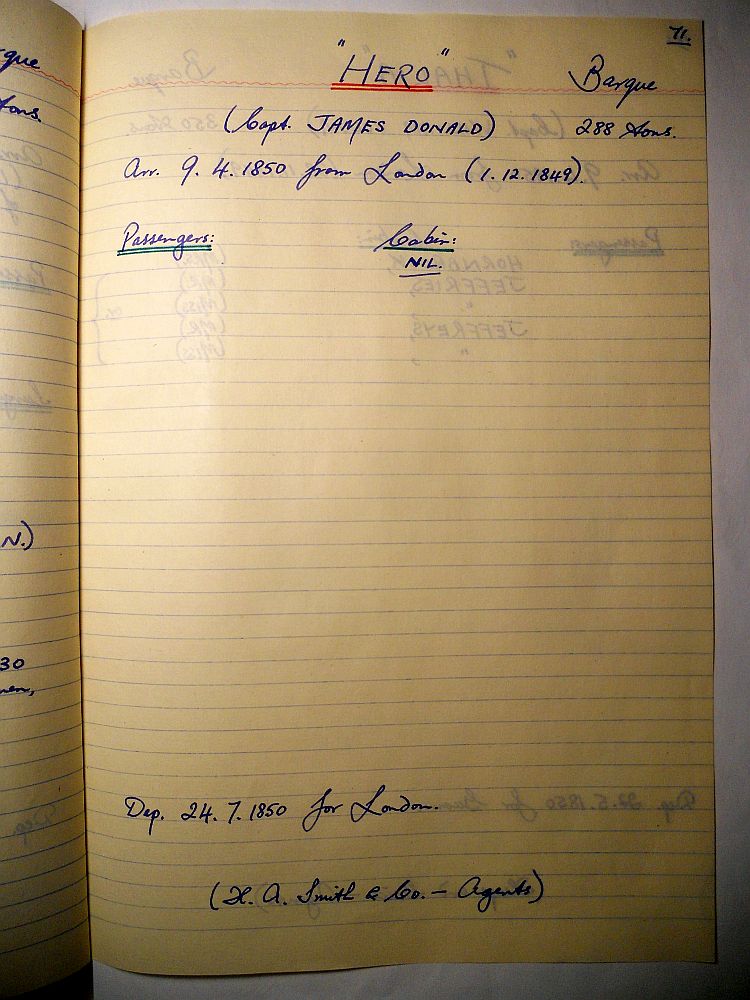 71.
"HERO" Barque
(Capt. JAMES DONALD) 288 tons.
Arr. 9. 4. 1850 from London (1. 12. 1849).
Passengers: Cabin:
NIL.
Dep. 24. 7. 1850 for London.
(H. A. Smith & Co. - Agents)
rque
tons.
N.)
30
men,